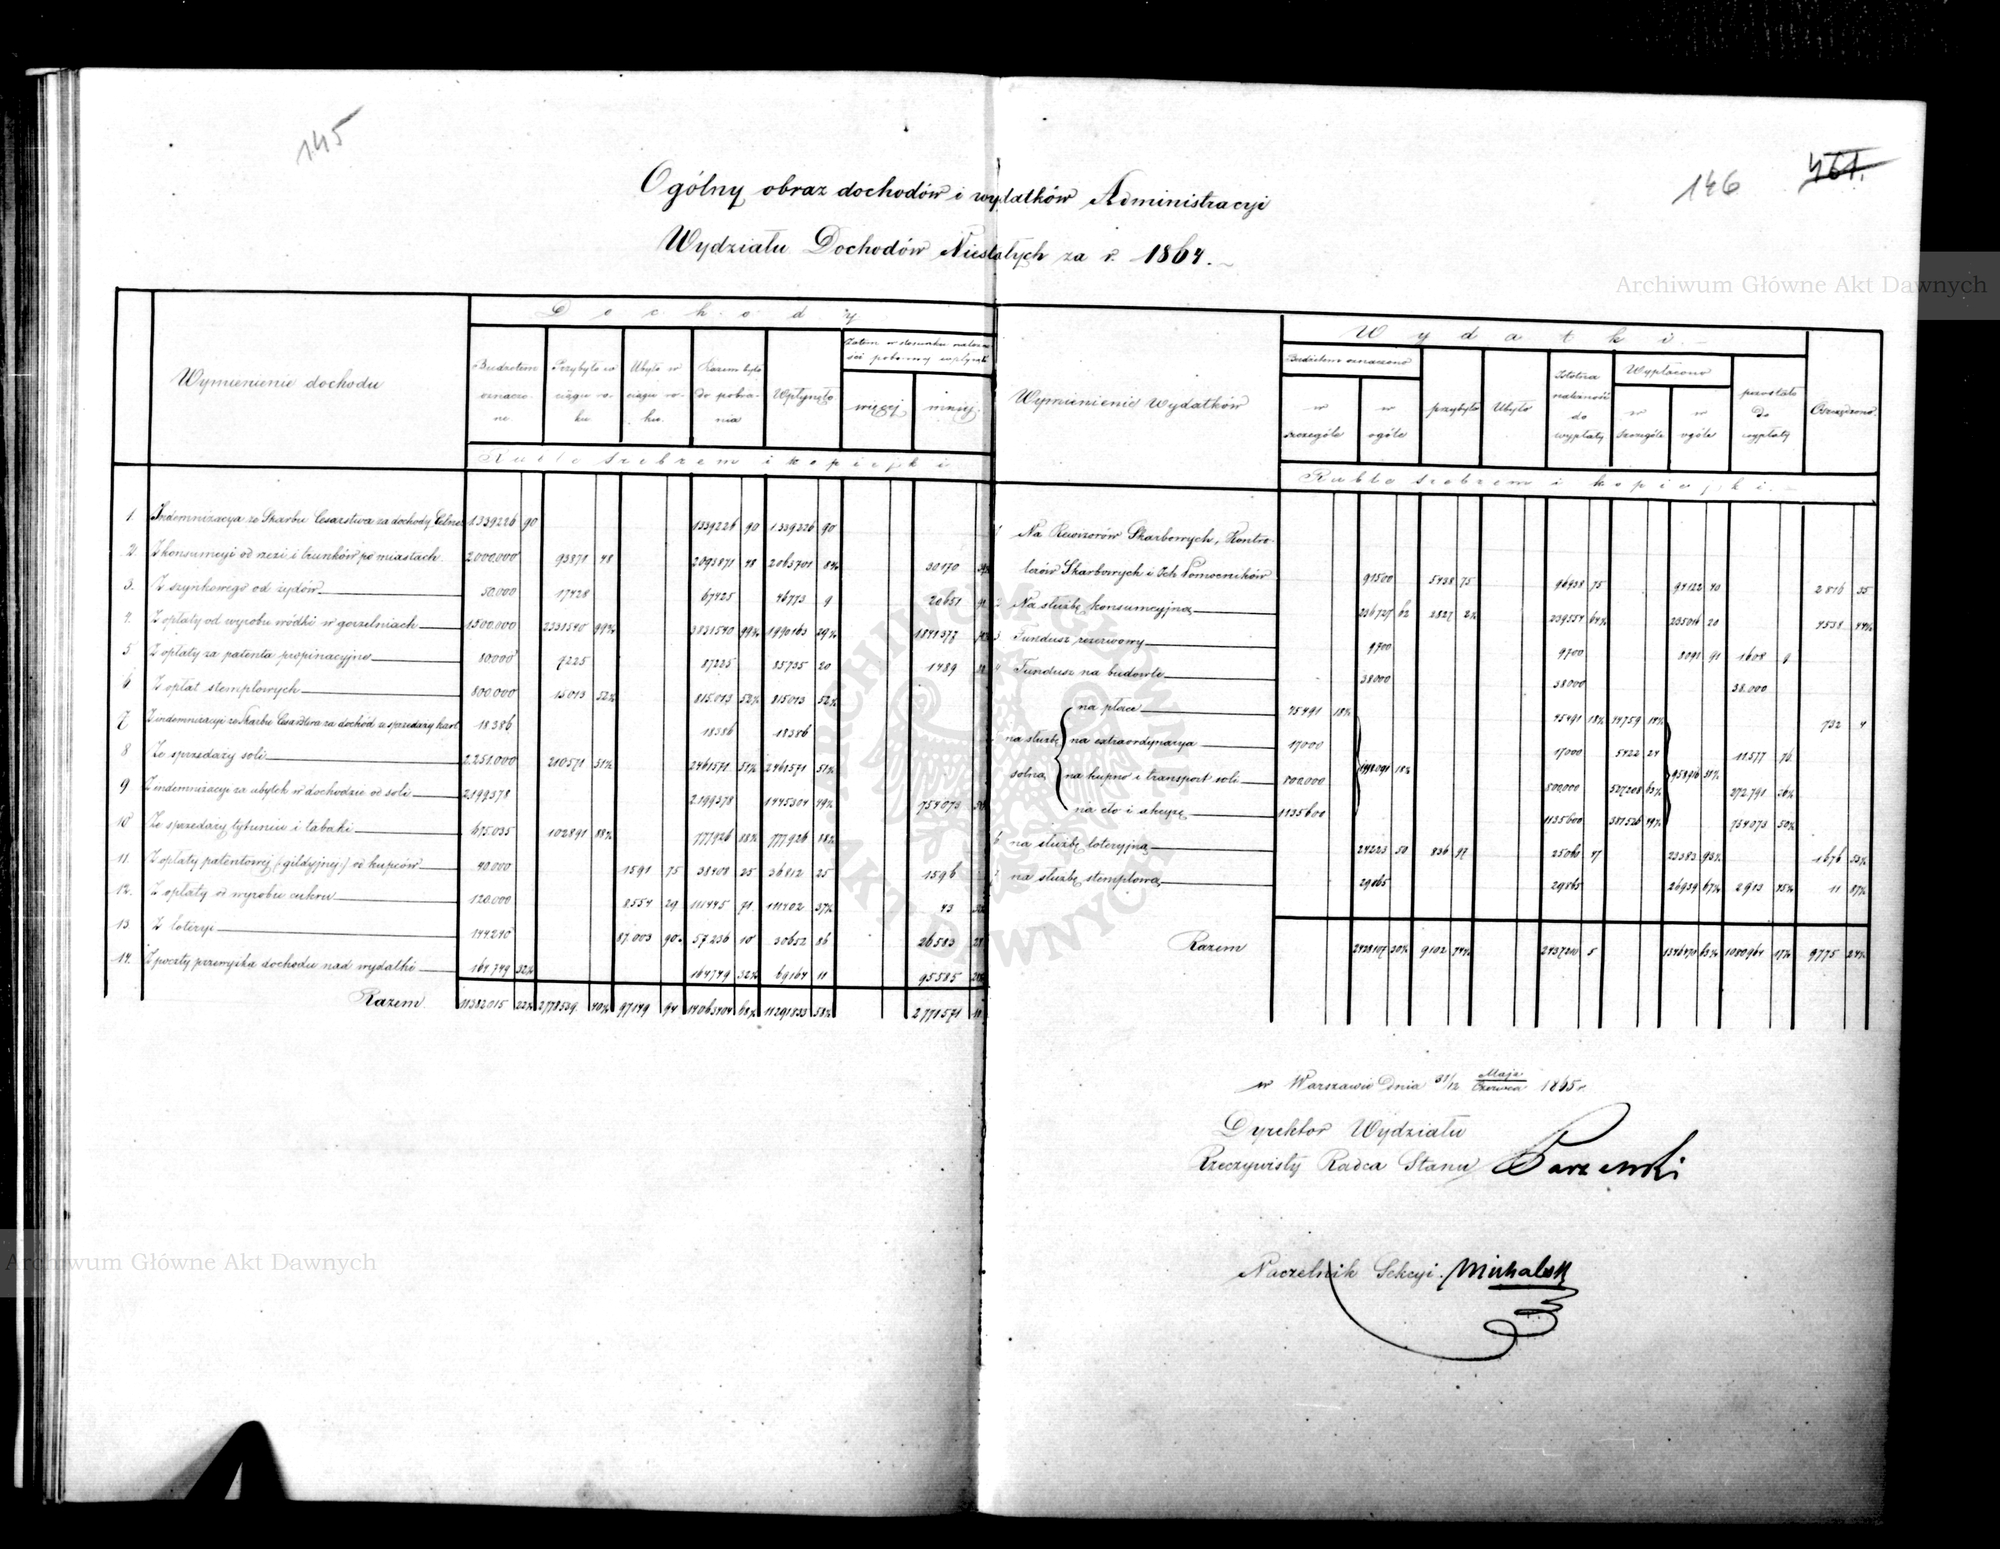 145
146
461.
Ogólny obraz dochodów i wydatków Administracyi
Wydziału Dochodów Niestałych za r. 1864.
Archiwum Główne Akt Dawnych
Dochody
Wymienienie dochodu
Budżetem oznaczone
Przybyło w ciągu roku
Ubyło w ciągu roku
Razem było do pobrania
Wpłynęło
Zatem w stosunku należności poborowej wpłynęło
więcej
mniej
Ruble srebrem i kopiejki
1. Indemnizacya ze Skarbu Cesarstwa za dochody Celne 1339226 90 1339226 90 1339226 90
2. Z konsumcyi od rzezi i trunków po miastach 2000.000 93871 48 2093871 48 2063701 30170
3. Z szynkowego od żydów 50.000 17428 67425 46773 9 20651
4. Z opłaty od wyrobu wódki w gorzelniach 1500.000 2331540 99½ 3831540 99½ 1990163 29½ 1841377
5 Z opłaty za patenta propinacyjne 80.000 7225 87225 85735 20 1489
6 Z opłat stemplowych 800.000 15013 52½ 815.013 52½ 815013 52½
7. Z indemnizacyi ze Skarbu Cesarstwa za dochód ze sprzedaży kart 18386 18386 18386
8 Ze sprzedaży soli 2.251.000 210571 51½ 2461571 51½ 2461571 51½
9 Z indemnizacyi za ubytek w dochodzie od soli 2199378 2199378 1445304 49½ 754073
10 Ze sprzedaży tytuniu i tabaki 675.035 102891 88½ 777926 88½ 777926 88½
11. Z opłaty patentowej (gildyjnej) od kupców 40.000 1591 75 38408 25 36812 25 1596
12. Z opłaty od wyrobu cukru 120.000 8554 29 111445 71 111402 37½ 43
13. Z loteryi 144240 87.003 90 57236 10 30652 86 26583
14. Z poczty przewyżka dochodu nad wydatki 164.749 32½ 164749 32½ 69164 11 95585
Razem 11382015 22½ 2778539 40½ 97149 94 14063404 68½ 11291833 58½ 2771571
Wydatki
Wymienienie Wydatków
Budżetem oznaczono
w szczególe
w ogóle
przybyło
Ubyło
Istotna należność do wypłaty
Wypłacono
w szczególe
w ogóle
pozostało do wypłaty
Oszczędzono
Ruble srebrem i kopiejki
1 Na Rewizorów Skarbowych, Kontro-
lerów Skarbowych i Ich Pomocników 91500 5438 75 96938 75 94122 40 2816 35
2 Na służbę konsumcyjną 236727 62 2827 239554 64½ 235016 20 4538 44½
3 Fundusz rezerwowy 9700 9700 8091 91 1608 9
4 Fundusz na budowle 38000 38000 38.000
na służbę solną
na płace 45491 18½ 45491 18½ 44759 14½ 732 4
na extraordynarya 17000 17000 5422 24 11577 76
na kupno i transport soli 800.000 1998091 18½ 800,000 527208 63½ 958916 272.791 36½
na cło i akcyzę 1135600 1135600 381526 49½ 754073 50½
6 na służbę loteryjną 24223 50 836 97 25060 47 23383 93½ 1676 53½
7 na służbę stemplową 29865 29865 26939 67½ 2913 45½ 11 87½
Razem 2428107 30½ 9102 74½ 2437210 5 1346470 63½ 1080964 17½ 9775 24½
w Warszawie Dnia 31/12 Maja/Czerwca 1865 r.
Dyrektor Wydziału
Rzeczywisty Radca Stanu
Naczelnik Sekcyi.
Archiwum Główne Akt Dawnych